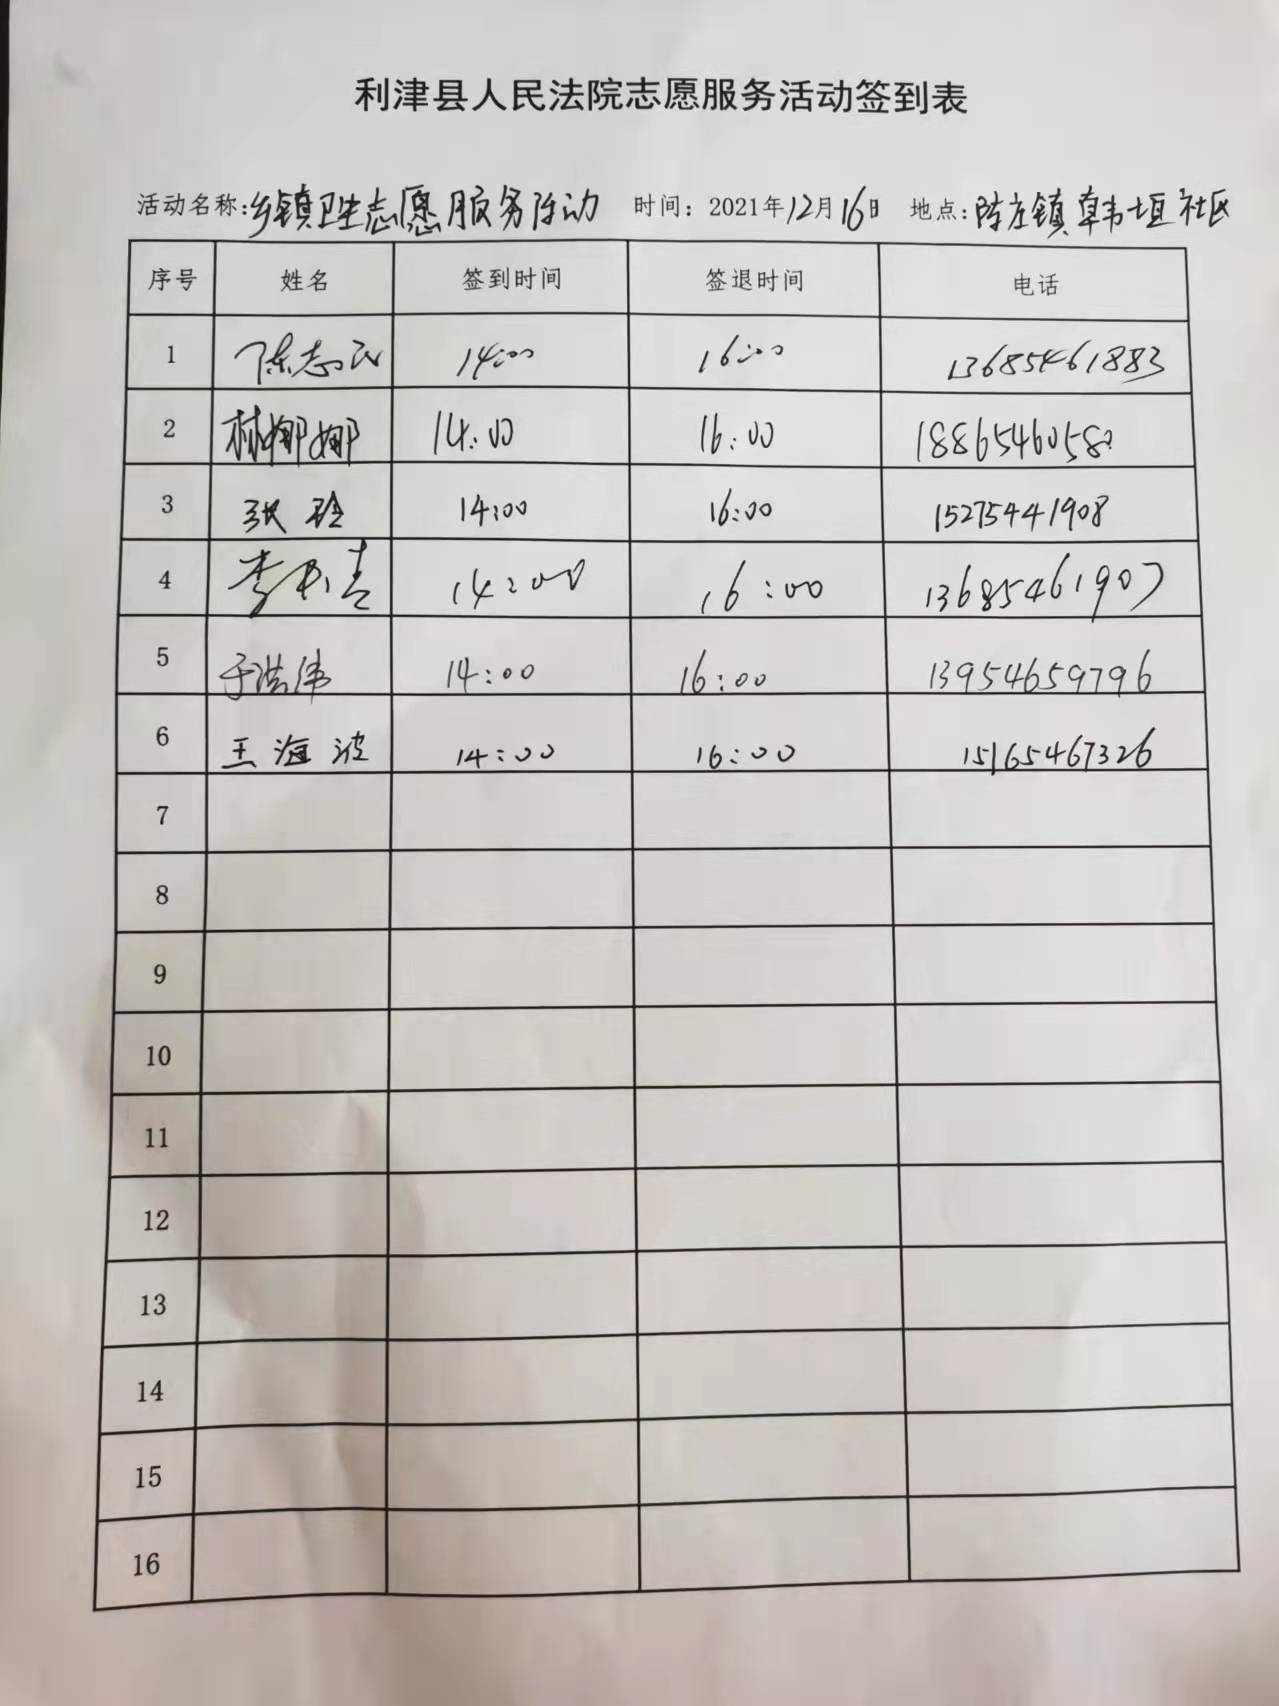 利津县人民法院志愿服务活动签到表
活动名称:乡镇卫生志愿服务活动 时间: 2021年12月16日 地点:陈庄镇韩垣社区
序号 姓名 签到时间 签退时间 电话
1 陈志民 14:00 16:00 13685461883
2 林娜娜 14:00 16:00 1886546058
3 张玲 14:00 16:00 15275441908
4 李 14:00 16:00 13685461907
5 于洪伟 14:00 16:00 13954659796
6 王海波 14:00 16:00 15165467326
7
8
9
10
11
12
13
14
15
16